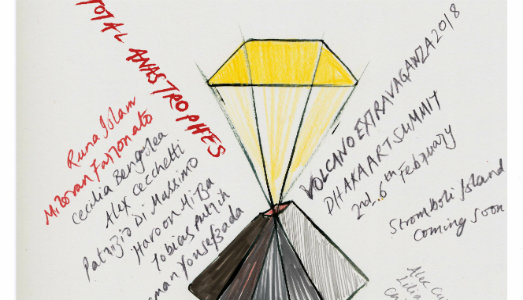 TOTAL ANASTROPHES
Runa Islam
Milovan Farronato
Cecilia Bengolea
Alex Cecchetti
Patrizio Di Massimo
Haroon Mirza
Tobias Putrih
sman Yousefzada
VOLCANO EXTRAVAGANZA 2018
DHAKA ART SUMMIT
2nd_6th February
Stromboli Island
Coming Soon
Alex